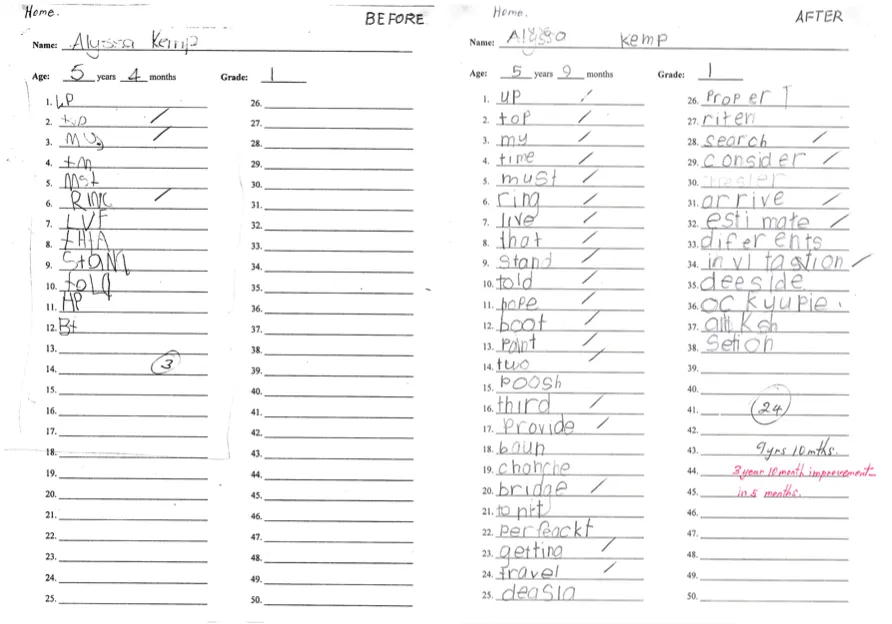 Home. BEFORE
Name: Alyssa Kemp
Age: 5 years 4 months Grade: 1
1. UP
2. top
3. mug
4. tm
5. mst
6. RINC
7. LVF
8. tHtA
9. StaND
10. toLd
11. HP
12. Bt
13.
14. 3
15.
16.
17.
18.
19.
20.
21.
22.
23.
24.
25.
26.
27.
28.
29.
30.
31.
32.
33.
34.
35.
36.
37.
38.
39.
40.
41.
42.
43.
44.
45.
46.
47.
48.
49.
50.
Home. AFTER
Name: Alyssa Kemp
Age: 5 years 9 months Grade: 1
1. up
2. top
3. my
4. time
5. must
6. ring
7. live
8. that
9. stand
10. told
11. hope
12. boot
13. paint
14. two
15. poosh
16. third
17. Provide
18. baun
19. chanche
20. bridge
21. to prt
22. perfeackt
23. getting
24. travel
25. deasia
26. Proper T
27. riten
28. search
29. consider
30.
31. arrive
32. estimate
33. diferents
34. invitastion
35. deeside
36. oc kyupie
37. 
38. Setion
39.
40.
41. 24
42.
43. 9yrs 10mths.
44. 3 year 10 month improvement
45. in 5 months.
46.
47.
48.
49.
50.